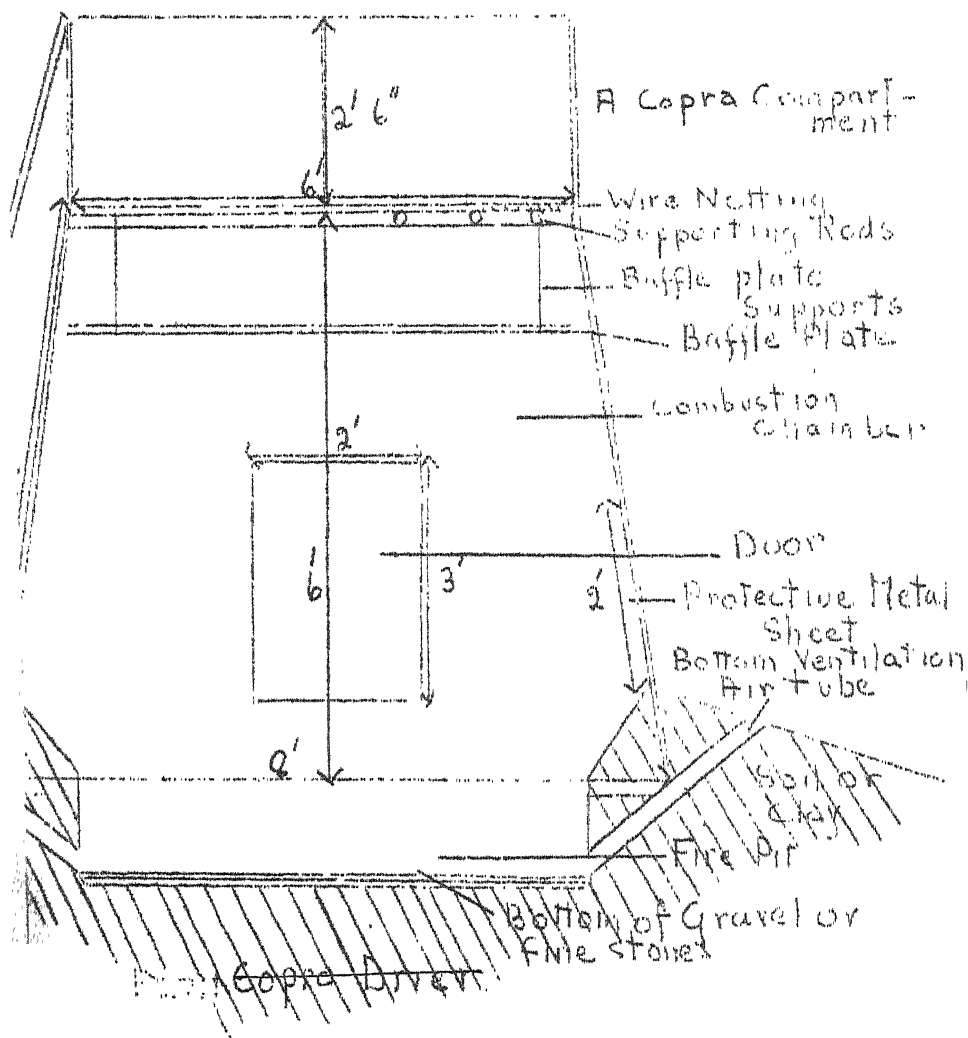 2' 6"
A Copra Compart-
ment
6'
Wire Netting
Supporting Rods
Baffle plate
Supports
Baffle Plate
Combustion
Chamber
2'
Door
6'
3'
2'
Protective Metal
Sheet
Bottom Ventilation
Air tube
8'
Soil or
Clay
Fire Pit
Bottom of Gravel or
Fine Stones
Copra Drier